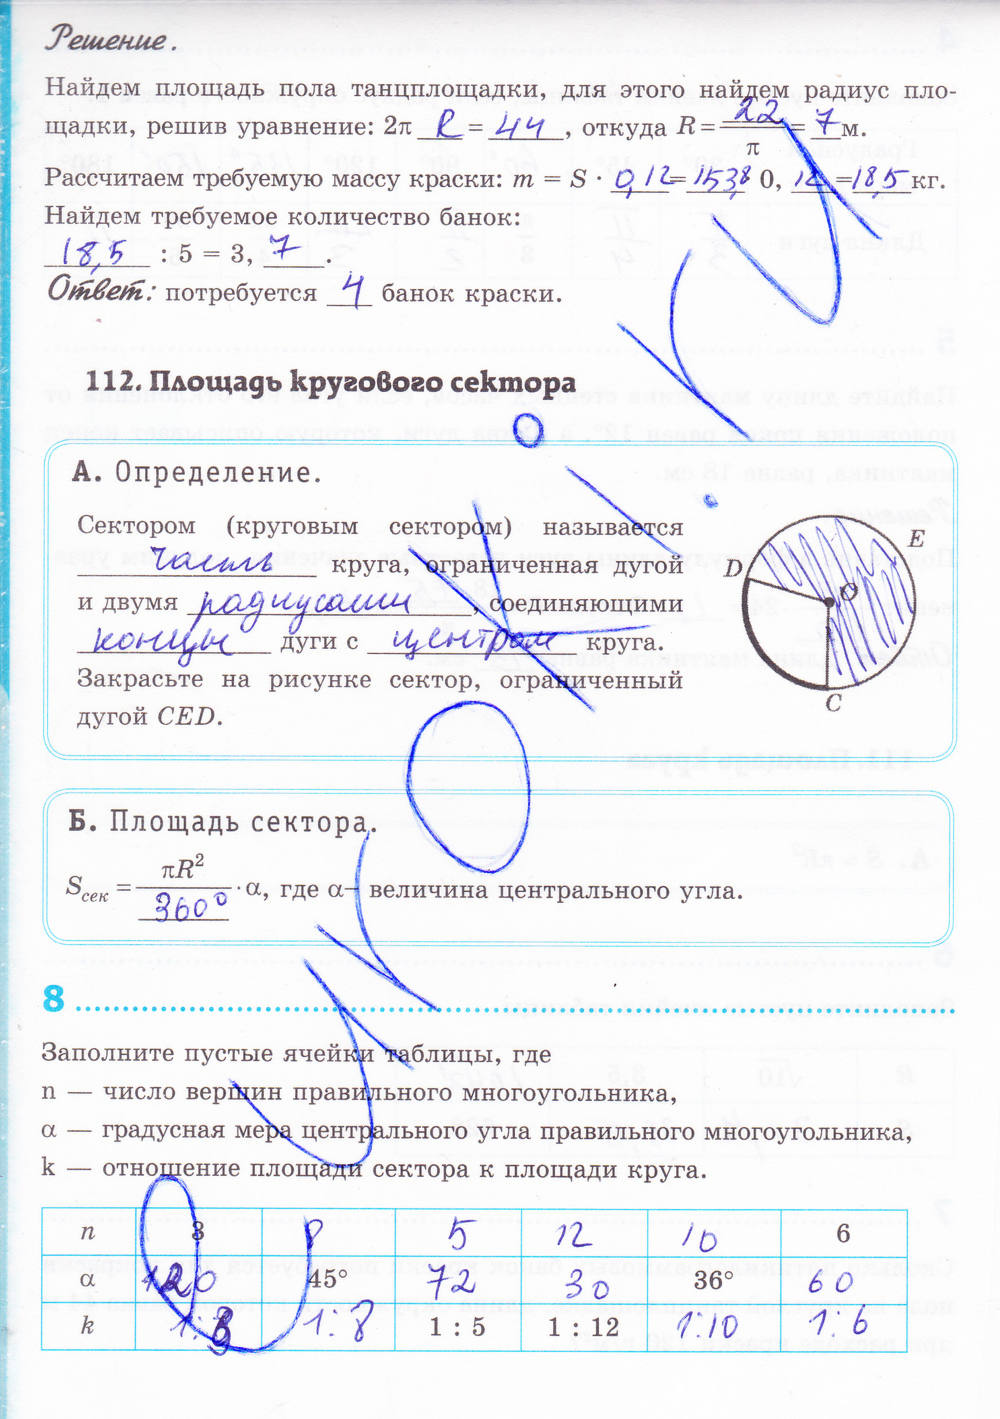 Решение.
Найдем площадь пола танцплощадки, для этого найдем радиус пло-
щадки, решив уравнение: 2π R = 44, откуда R = 22/π = 7 м.
Рассчитаем требуемую массу краски: m = S · 0,12 = 153,8 0, 12 = 18,5 кг.
Найдем требуемое количество банок:
18,5 : 5 = 3, 7.
Ответ: потребуется 4 банок краски.
112. Площадь кругового сектора
А. Определение.
Сектором (круговым сектором) называется
часть круга, ограниченная дугой
и двумя радиусами, соединяющими
концы дуги с центром круга.
Закрасьте на рисунке сектор, ограниченный
дугой CED.
E
D
O
C
Б. Площадь сектора.
Sсек = πR²/360° · α, где α – величина центрального угла.
8
Заполните пустые ячейки таблицы, где
n — число вершин правильного многоугольника,
α — градусная мера центрального угла правильного многоугольника,
k — отношение площади сектора к площади круга.
n 3 8 5 12 10 6
α 120 45° 72 30 36° 60
k 1:3 1:8 1 : 5 1 : 12 1:10 1:6